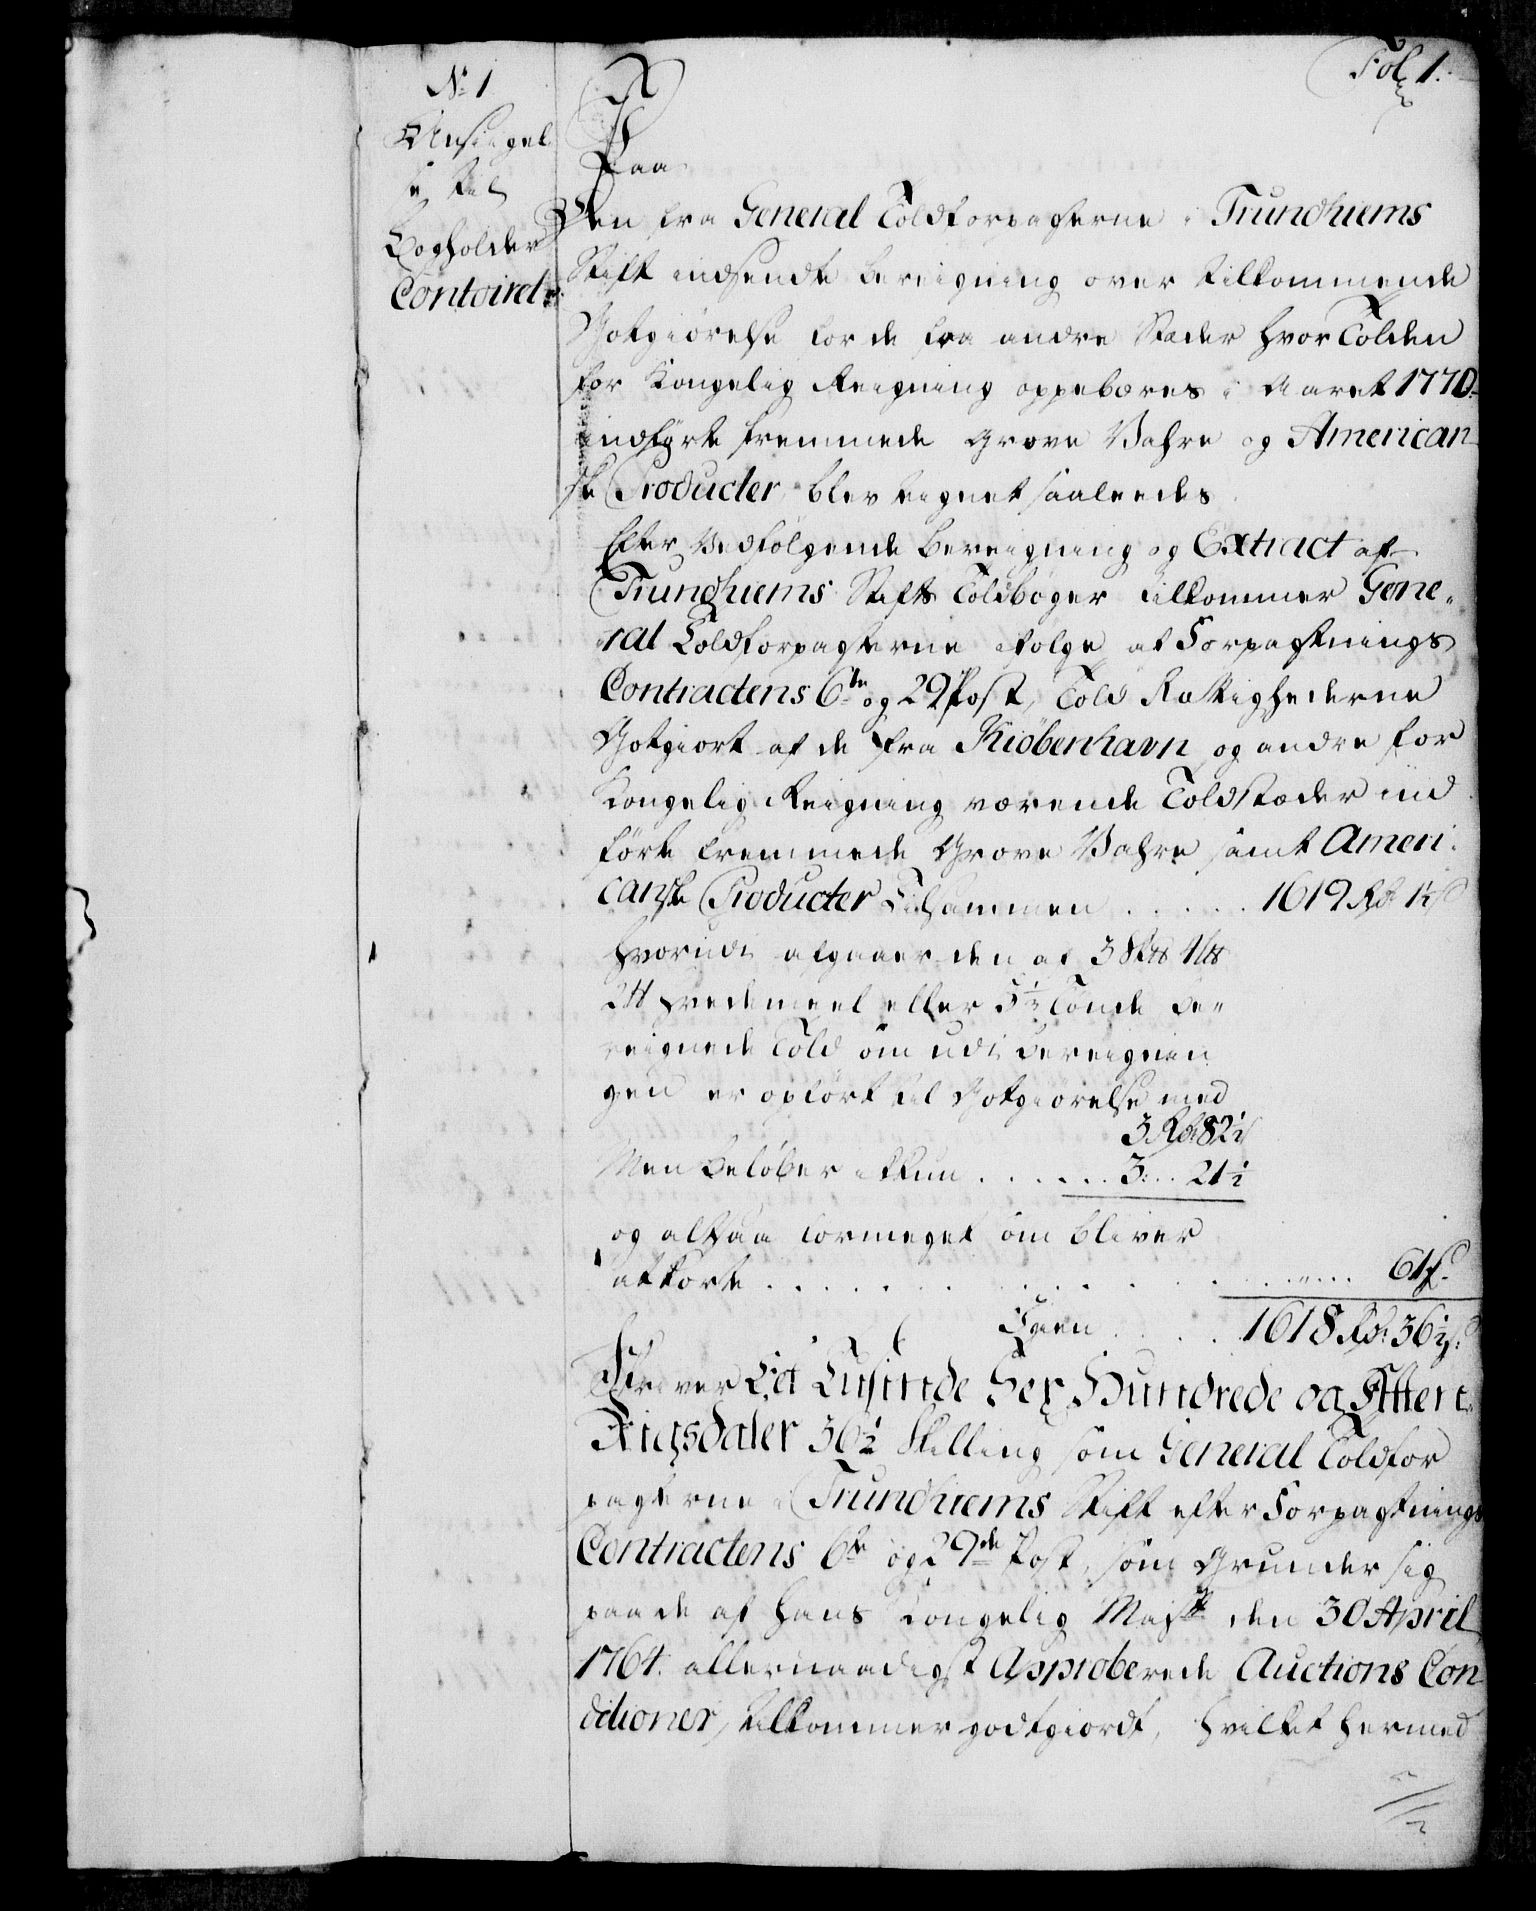 Fol 1.
No 1
Ansigel
se til
Bogholder
Contoiret
Paa
Den fra General Toldforpagterne i Trundhiems
Stift indsendte Bereigning over tilkommende
Godtgiørelse for de fra andre Stæder hvor Tolden
for Kongelig Reigning oppebæres i Aaret 1770
indførte fremmede Grove Vahre og American
ske Producter, blev teignet saaleedes
Efter Vedfølgende Bereigning og Extract af
Trundhiems Stifts Toldbøger tilkommer Gene
ral Toldforpagterne ifølge af Forpagtnings
Contractens 6te og 29 Post, Told Rættighederne
Godtgiort af de fra Kiøbenhavn og andre for
Kongelig Reigning værende Toldstæder ind
førte fremmede Grove Vahre samt Ameri
canske Producter Tilsammen . . . . . 1619 Rd 1½ s
hvorudi afgaaer den af 3 Sk℔ 4 L℔
2 ℔ Hvedemeel eller 5½ Tønde be
reignede Told som udi Bereignin
gen er opført til Godtgiørelse med
3 Rd 82½
Men beløber ikkun . . . . . . 3 . . . 21½
og altsaa formeget som bliver
at korte . . . . . . . . . . . . 61 s
Igien . . . . 1618 Rd 36½ s
Skriver Eet Tusinde Sex Hundrede og Atten
Rigsdaler 36½ Skilling som General Toldfor
pagterne i Trundhiems Stift efter Forpagtnings
Contractens 6te og 29de Post, som Grunder sig
paa de af Hans Kongelig Mayst den 30 April
1764 allernaadigst Approberede Auctions Con
ditioner, tilkommer godtgiordt, hvilket hermed